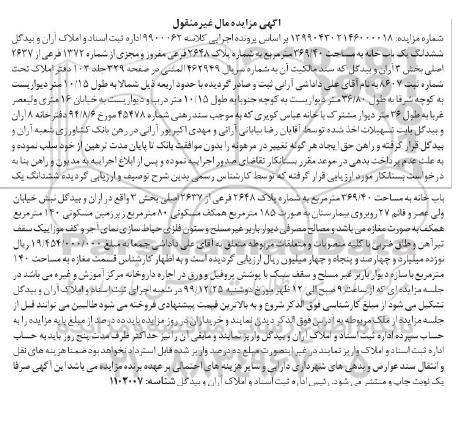 آگهی مزایده مال غیرمنقول
شماره مزایده: ۱۳۹۹۰۴۳۰۲۱۴۶۰۰۰۰۱۸ بر اساس پرونده اجرایی کلاسه ۹۹۰۰۰۶۲ اداره ثبت اسناد و املاک آران و بیدگل
ششدانگ یک باب خانه به مساحت ۳۶۹/۴۰ مترمربع به شماره پلاک ۲۶۴۸ فرعی مفروز و مجزی از شماره ۱۳۷۲ فرعی از ۲۶۳۷
اصلی بخش ۳ آران و بیدگل که سند مالکیت آن به شماره سریال ۴۶۲۹۴۹ المثنی در صفحه ۳۲۹ جلد ۱۰۳ دفتر املاک تحت
شماره ثبت ۸۶۰۷ به نام آقای علی داداشی آرانی ثبت و صادر گردیده با حدود اربعه ذیل شمالا به طول ۱۰/۱۵ متر دیواریست
به کوچه شرقا به طول ۳۶/۸۰ متر دیواریست به کوچه جنوبا به طول ۱۰/۱۵ متر درب و دیواریست به خیابان ۱۶ متری ولیعصر
غربا به طول ۳۶ متر دیوار مشترک با خانه عباس کویری که به موجب سند رهنی شماره ۴۵۴۷۸ مورخ ۹۴/۸/۶ دفترخانه ۸ آران
و بیدگل بابت تسهیلات اخذ شده توسط آقایان رضا بیابانی آرانی و مهدی اکبرپور آرانی در رهن بانک کشاورزی شعبه آران و
بیدگل قرار گرفته و راهن حق ایجاد هر گونه تغییر در مرهونه را بدون موافقت بانک تا پایان مدت نرهین از خود سلب نموده و
به علت عدم پرداخت بدهی در موعد مقرر بستانکار تقاضای صدور اجراییه نموده و پس از ابلاغ اجراییه به مدیون و راهن بنا به
درخواست بستانکار مورد ارزیابی قرار گرفته که توسط کارشناس رسمی بدین شرح توصیف و ارزیابی گردیده ششدانگ یک
باب خانه به مساحت ۳۶۹/۴۰ مترمربع به شماره پلاک ۲۶۴۸ فرعی از ۲۶۳۷ اصلی بخش ۳ واقع در آران و بیدگل نبش خیابان
ولی عصر و قائم ۲۷ روبروی بیمارستان به صورت ۱۸۵ مترمربع همکف مسکونی ۸۰ مترمربع زیرزمین مسکونی ۱۴۰ مترمربع
همکف به صورت مغازه می باشد و مصالح مصرفی دیوار باربر غیر مسلح و ستون فلزی حیاط سازی نمای آجر و کف موزاییک سقف
تیرآهن و طاق ضربی با کلیه منصوبات و متعلقات مربوطه متعلق به آقای علی داداشی جمعا به مبلغ ۱۹/۴۵۴/۰۰۰/۰۰۰ ریال
نوزده میلیارد و چهارصد و پنجاه و چهار میلیون ریال ارزیابی گردیده است و به اظهار کارشناس قسمت مغازه به مساحت ۱۴۰
مترمربع با سازه دیوار باربر غیر مسلح و سقف سبک با پوشش پروفیل و ورق در اجاره داروخانه مرکز آموزش و غیره می باشد در
جلسه مزایده ای که از ساعت ۹ صبح الی ۱۲ ظهر مورخ دوشنبه ۹۹/۱۲/۲۵ در شعبه اجرای ثبت اسناد و املاک آران و بیدگل
تشکیل می شود از مبلغ کارشناسی فوق الذکر شروع و به بالاترین قیمت پیشنهادی فروخته می شود طالبین می توانند قبل از
جلسه مزایده از ملک مربوطه به آدرس فوق الذکر دیدن نمایند و خریداران در روز مزایده بایده ده درصد از مبلغ پایه مزایده را به
حساب سپرده اداره ثبت اسناد و املاک آران و بیدگل واریز نمایند و مابقی آن را نیز حداکثر ظرف مدت پنج روز باید به حساب
اداره ثبت اسناد و املاک واریز نمایند در غیر اینصورت مبلغ ده درصد واریز شده قابل استرداد نخواهد بود ضمنا هزینه های نقل
و انتقال سند عوارض و بدهی های شهرداری دارایی و سایر هزینه های احتمالی بر عهده برنده مزایده می باشد این آگهی صرفا
یک نوبت چاپ و منتشر می شود. رئیس اداره ثبت اسناد و املاک آران و بیدگل شناسه: ۱۱۰۳۰۰۷